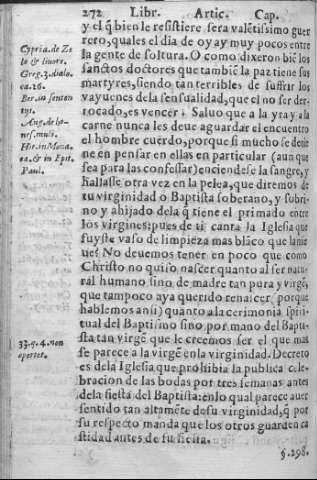 272 Libr. Artic. Cap.
y el q̃ bien le resistiere sera valẽtissimo guer
rero, quales el dia de oy ay muy pocos entre
la gente de soltura. O como dixeron biẽ los
sanctos doctores que tambiẽ la paz tiene sus
martyres, siendo tan terribles de suffrir los
vayuenes dela sensualidad, que el no ser der-
rocado, es vencer. Saluo que a la yra y a la
carne nunca les deue aguardar el encuentro
el hombre cuerdo, porque si mucho se detie
ne en pensar en ellas en particular (aun que
sea para las confessar) enciendese la sangre, y
hallasse otra vez en la pelea, que diremos de
tu virginidad o Baptista soberano, y sobri-
no y ahijado dela q̃ tiene el primado entre
los virgines: pues de ti canta la Iglesia que
fuyste vaso de limpieza mas blãco que la nie
ue? No deuemos tener en poco que como
Christo no quiso nascer quanto al ser natu-
ral humano sino de madre tan pura y virgẽ,
que tampoco aya querido renascer (porque
hablemos ansi) quanto a la cerimonia spiri-
tual del Baptismo sino por mano del Bapti-
sta tan virgẽ que le creemos ser el que mas
se parece a la virgẽ en la virginidad. Decreto
es dela Iglesia que prohibia la publica cele-
bracion de las bodas por tres semanas antes
dela fiesta del Baptista: en lo qual parece auer
sentido tan altamẽte de su virginidad, q̃ por
su respecto manda que los otros guarden ca
stidad antes de su fiesta.
§.298.
Cypria. de Ze
lo & liuore.
Greg. 3. dialo.
ca. 26.
Ber. in senten
tijs.
Aug. de ho-
nes. muli.
Hie. in Mona.
ea. & in Epit.
Paul.
33. q. 4. non
oportet.